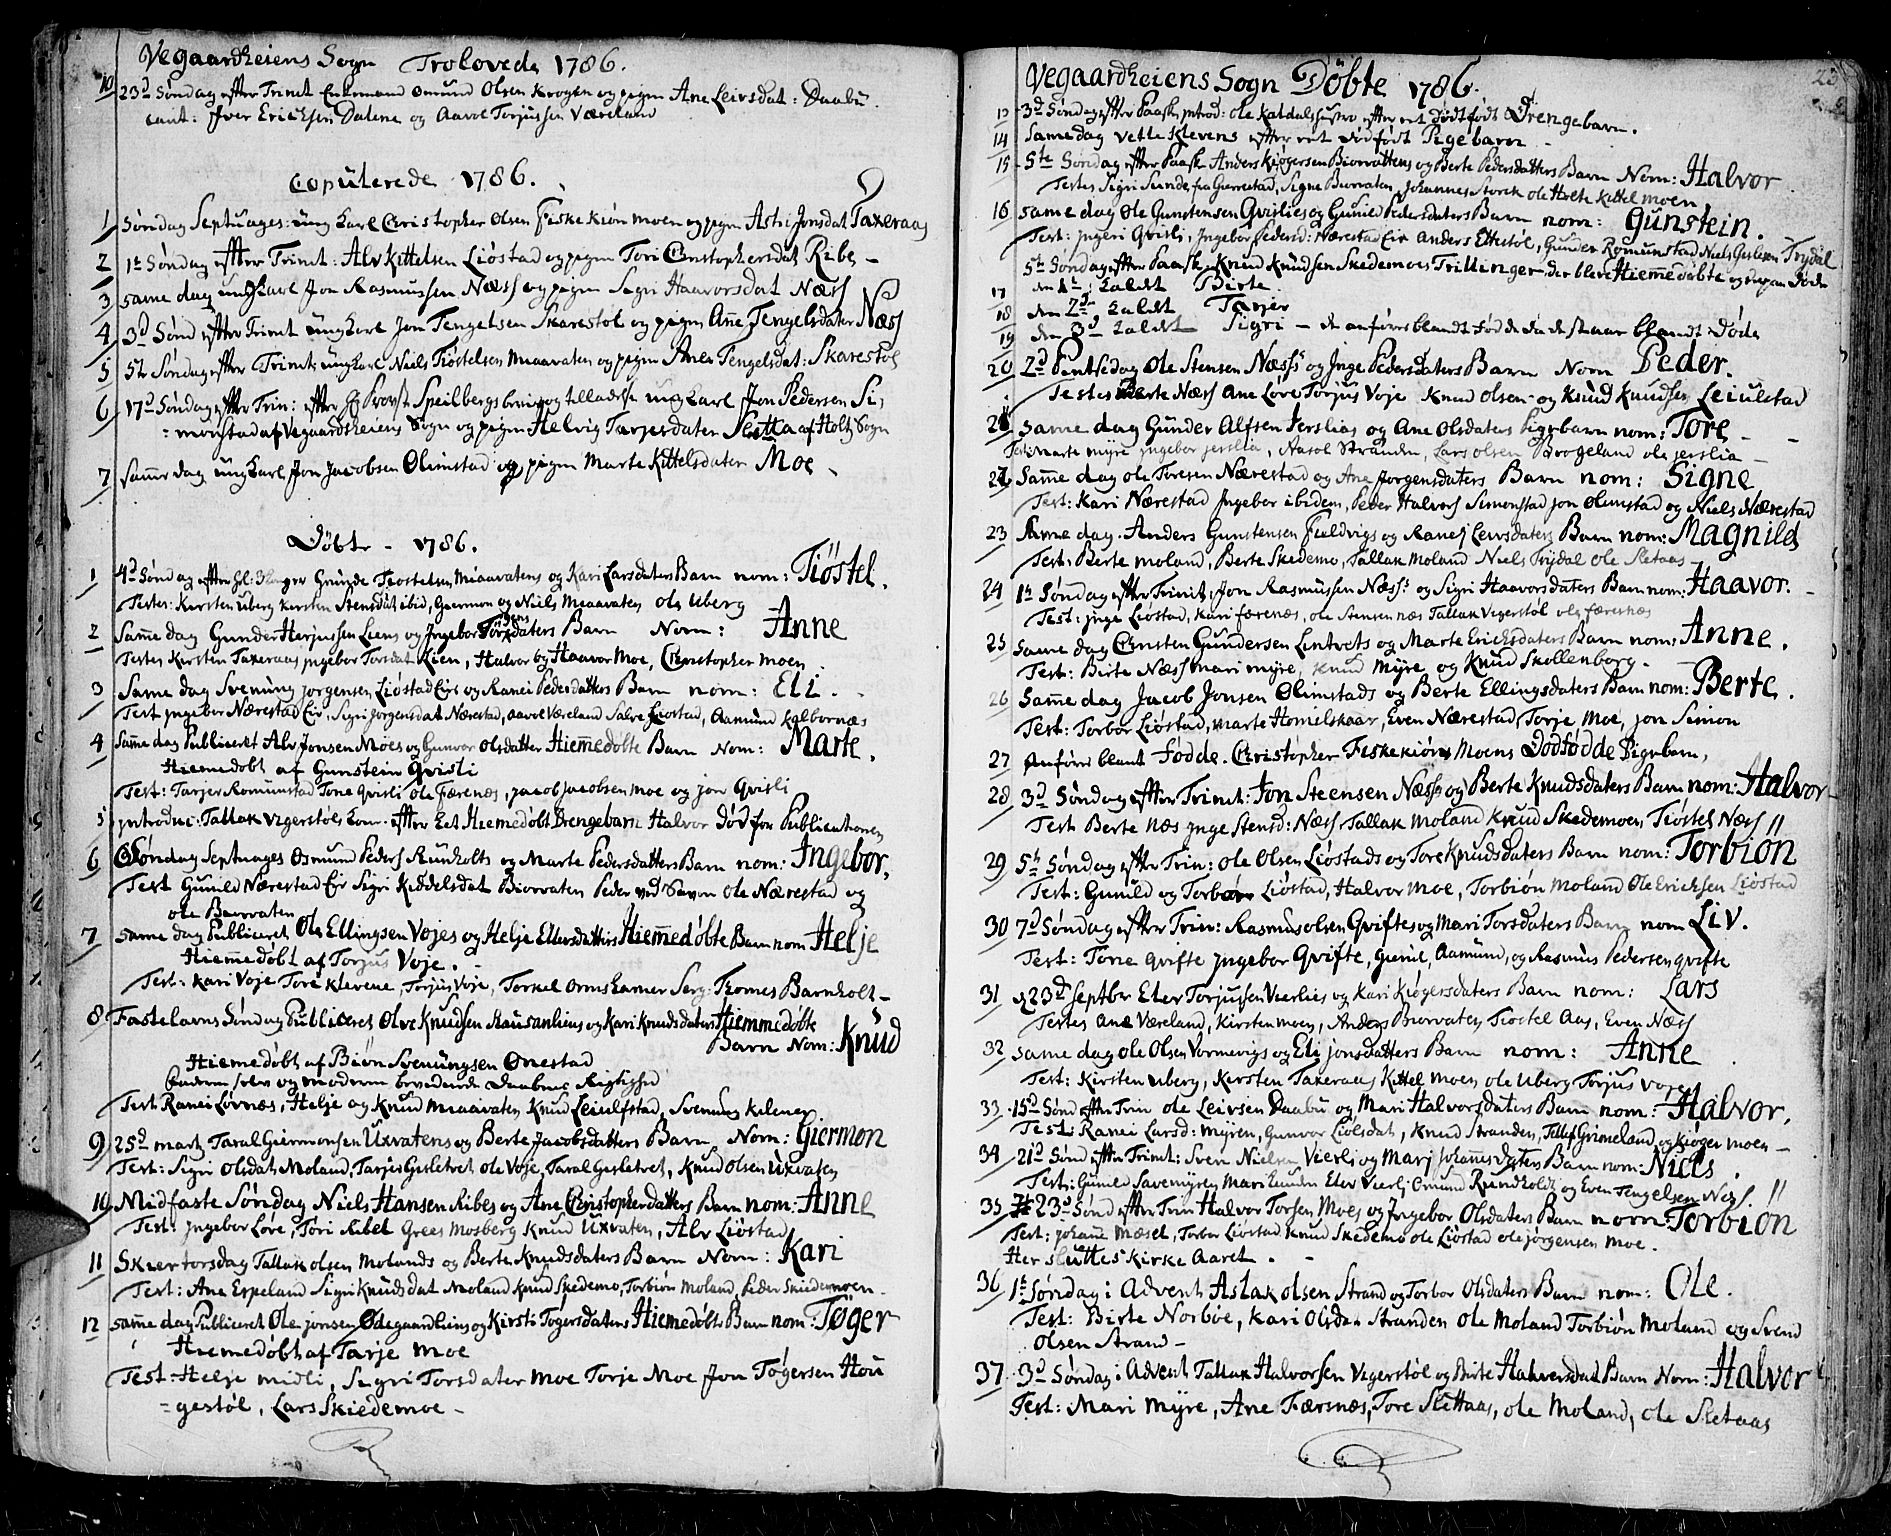 Vegaardheiens Sogn Trolovede 1786.
10 23d Søndag efter Trinit Enkemand Omund Olsen Krogen og pigen Ane Leivsdat: Daabu
cant: Iver Ericksen Dalene og Aavol Torjussen Væreland
Copulerede 1786.
1 Søndag Septuages: ung Karl Christopher Olsen Fiskekiøn moen og pigen Astri Jonsdat Taxeraas
2 1te Søndag efter Trinit: Alv Kittelsen Liøstad og pigen Tori Christophersdat Ribe -
3 samme dag ung Karl Jon Rasmussen Næss og pigen Sigri Haavorsdat Næss
4 3d Sønd efter Trinit ung Karl Jon Tengelsen Skarestøl og pigen Anne Tengelsdater Næss
5 5te Søndag efter Trinit: ung Karl Niels Tiøstelsen Miaavaten og pigen Ane Tengelsdat: Skarestøl
6 17d Søndag efter Trin: efter Hr Provst Speilbergs bevis og tilladelse ung Karl Jon Pedersen Si-
=monstad af Vegaardsheiens Sogn og pigen Helvig Tarjesdater Sletta af Holts Sogn
7 samme dag ung Karl Jon Jacobsen Olimstad og pigen Marte Kittelsdater Moe -
Døbte - 1786.
1 4d Søndag efter Hl: 3 Konger Gunde Tiostelsen Miaavatens og Kari Larsdaters Barn nom: Tiøstel.
Testes: Kirsten Uberg Kirsten Stensdat ibid, Giermon og Niels Miaavaten Ole Uberg
2 Samme dag Gunder Herjussen Liens og Ingebor Torsdaters Barn Nom: Anne
Testes Kirsten Taxeraas Ingebor Torsdat Lien, Halvor og Haavor Moe, Christopher moen
3 Same dag Svenung Jorgensen Liøstad Eie og Ranei Pedersdatters Barn nom: Eli.
Test Ingebor Nærestad Eie, Sigri Jorgensdat Nærestad, Aavol Væreland Salve Liøstad, Aamund Kalbornæs
4 Samme dag Publiceret Alv Jonsen Moes og Gunvor Olsdatter Hiemmedøbte Barn Nom: Marte.
Hiemmedøbt af Gunstein Qvisli
Test: Tarjer Romunstad Tone Qvisli Ole Færenæs, Jacob Jacobsen moe og Jon Qvisli
5 Introduc: Tallak Vigerstøls Kone efter Eet Hiemedøbt Drengebarn Halvor Død for Publicationen
6 Søndag Septuages Osmund Peders Runholts og Marte Pedersdatters Barn nom: Ingebor,
Test Gunild Nærestad Eie Sigri Kiddelsdat Biorvaten Peder ved Saven Ole Nærestad og
Ole Biorvaten
7 samme dag Publiceret Ole Ellingsen Vojes og Helje Ellersdatters Hiemmedøbte Barn nom Helje
Hiemmedøbt af Torjus Voje.
Test: Kari Voje Tore Klevene, Torjus Voje, Torkel Ormskamer Serg: Thomes Barnholt -
8 Fastelavns Søndag Publiceret Olve Knudsen Hausanliens og Kari Knudsdaters Hiemmedøbte
Barn Nom: Knud
Hiemedøbt af Biøn Svenungsen Onestad
Faderen selv og moderen bevidende Daabens Rigtighed
Test Ranei Løvnæs, Helje og Knud Miaavaten Knud Leiulfstad, Svenung Kilener
9 25d marts Taral Giermonsen Uxvatens og Berte Jacobsdatters Barn Nom: Giermon
Test: Sigri Olsdat Moland, Tarjer Gesletvet Ole Voje, Taral Gesletvet, Knud Olsen Uxvaten
10 Midfaste Søndag Niels Hansen Ribes og Ane Christopherdatters Barn nom: Anne
Test: Ingebor Lore, Tori Ribe Grees Mosberg Knud Uxvaten, Alv Liøstad
11 Skiertorsdag Tallak Olsen Molands og Berte Knudsdaters Barn Nom: Kari
Test: Ane Espeland Sigri Knudsdat Moland Knud Skedemo, Torbiøn Moland, Peder Skiedemoen
12 samme dag Publiceret Ole Jonsen Ødegaardliens og Kirsti Tøgersdaters Hiemedøbte Barn nom: Tøger
Hiemedøbt af Tarje Moe
Test: Helje midli, Sigri Torsdater Moe Torje Moe Jon Tøgersen Hou
=gestøl, Lars Skiedemoe -
Vegaardheiens Sogn Døbte 1786. 23
13 3d Søndag efter Paaske introd: Ole Katdals hustro efter eet Dødfødt Drengebarn.
14 Samedag Vetle Klevens efter eet Dødfødt Pigebarn -
15 5te Søndag efter Paask Anders Kiøgersen Biorvattens og Berte Pedersdatters Barn Nom: Halvor.
Testes Sigri Sunde fra Gierrestad, Signe Biorvaten, Johannes Storek Ole Holte Kittel moen
16 same dag Ole Gunstensen Qvislies og Gunild Pedersdaters Barn nom: Gunstein.
Test: Ingeri Qvisli, Ingebor Pedersd: Nærestad Eie Anders Ettestøl, Gunder Romunstad Niels Geslesen Trydal
5te Søndag efter Paask Knud Knudsen Skedemoes Trillinger der bleve Hiemmedøbte og bepan Døde
17 den 1te kaldt Birte
18 den 2d kaldt Tarjer
19 den 3d kaldt Sigri - de anføres blandt fødde da de staar blandt Døde
20 2d Pintsedag Ole Stensen Næss's og Inge Pedersdaters Barn Nom Peder.
Testes Berte Næss Ane Love Torjus Voje Knud Olsen og Knud Knudsen Leiulstad
21 same dag Gunder Alfsen Jerslias og Ane Olsdaters Pigebarn nom: Tore -
Test: Marte Myre Ingebor Jerslia, Aasol Stranden, Lars Olsen Brogeland Ole Jerslia -
22 Samme dag Ole Toresen Nærestad og Ane Jorgensdaters Barn nom: Signe
Test: Kari Nærestad Ingebor ibidem, Peder Halvors Simonstad Jon Olimstad og Niels Nærestad
23 Same dag Anders Gunstensen Fieldvigs og Ranei Leivsdaters Barn nom: Magnild
Test: Berte Moland, Berte Skedemo, Tallak Moland Niels Trydal Ole Sletaas -
24 1te Søndag efter Trinit: Jon Rasmussen Næss: og Sigri Haavorsdaters Barn nom: Haavor. -
Test: Inge Liøstad, Kari Færenæs, Ole Stensen næs Tallak Vigerstøl Ole Færenæs
25 same dag Christen Gundersen Lintvets og Marte Ericksdaters Barn nom: Anne.
Test: Birte Næss Mari Myre, Knud Myre og Knud Skollenborg.
26 Samme dag Jacob Jonsen Olimstads og Berte Ellingsdaters Barn nom: Berte.
Test: Torbor Liøstad, Marte Homelskaar, Even Nærestad Torje Moe, Jon Simon
27 Anføres blant Fødde. Christopher Fiskekiøns Moens Dødfødde Pigebarn,
28 3d Søndag efter Trinit: Jon Steensen Næss og Berte Knudsdaters Barn nom: Halvor -
Test Berte Næs Inge Stensd: Næss Tallak Moland Knud Skedemoen Tiøstel Næss //
29 5te Søndag efter Trin: Ole Olsen Liøstads og Tore Knudsdaters Barn nom: Torbiøn
Test: Gunild og Torbor Liøstad, Halvor Moe, Torbiøn Moland Ole Ericksen Liøstad
30 7d Søndag efter Trin: Rasmus Olsen Qviftes og Mari Torsdaters Barn nom Liv.
Test: Tone Qvifte Ingebor Qvifte, Gunil, Aamund, og Rasmus Pedersen Qvifte
31 d 23de Septbr Elev Torjussen Vierlies og Kari Kiøgersdaters Barn nom: Lars
Testes Ane Væreland, Kirsten moen, Anders Biorvaten Tiøstel Aas, Even Næss
32 same dag Ole Olsen Vormevigs og Eli Jonsdatters Barn nom: Anne
Test: Kirsten Uberg, Kirsten Taxeraas Kittel Moen Ole Uberg Torjus Voje
33 15d Sønd efter Trin Ole Leivsen Daabu og Mari Halvorsdaters Barn nom: Halvor,
Test: Ranei Larsd: Myren, Gunvor Liølsdat, Knud Stranden, Tellef Grimeland, og Kiøger moen -
34 21d Sønd efter Trinit: Sven Nielsen Vierli og Mari Johannesdaters Barn nom: Niels.
Test: Gunild Savemyren Mari Lunden Elev Vierli Omund Rundholdt og Even Tengelsen Næs. //
35 23d Sønd efter Trin Halvor Torsen Moes og Ingebor Olsdaters Barn nom: Torbiøn
Test: Johane Mæsel, Torbor Liøstad Knud Skedemo Ole Liøstad Ole Jørgensen Moe.
Her sluttes Kirke Aaret.
36 1te Søndag i Advent Aslak Olsen Strand og Torbor Olsdaters Barn nom: Ole.
Test: Birte Norboe, Kari Olsdat Stranden Ole Moland Torbiøn Moland og Svend
Olsen Strand -
37 3d Søndag i Advent Tallak Halvorsen Vigerstøl og Birte Halversdat Barn Nom: Halvor
Test: Mari Myre, Ane Færsnæs, Tore Slettaas, Ole Moland, Ole Sletaas